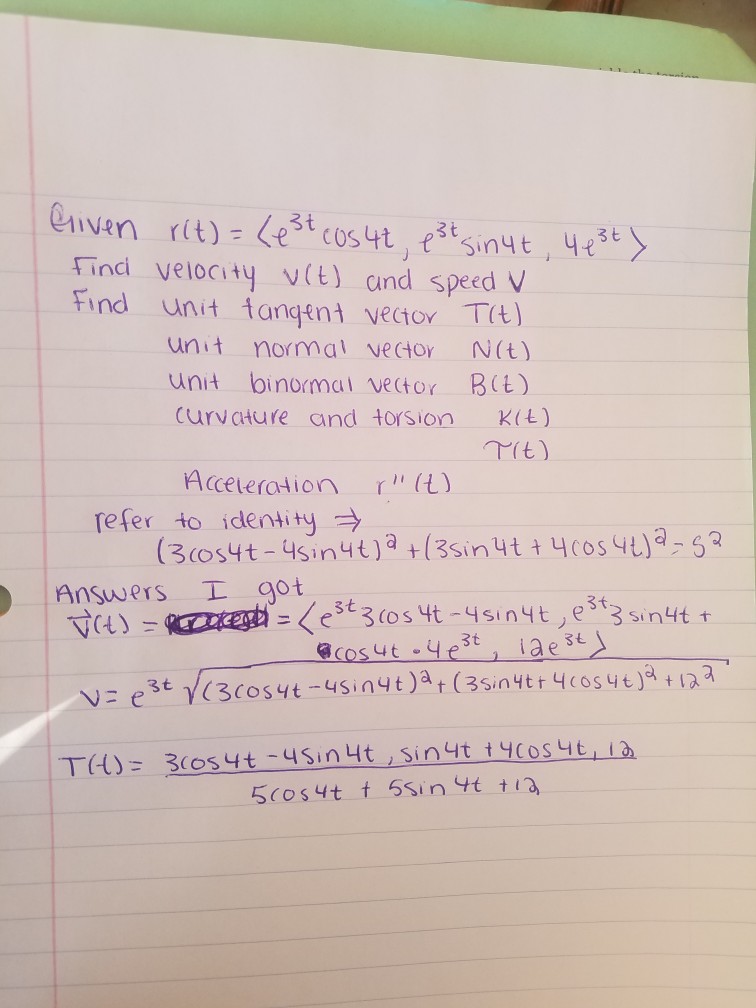 Given r(t) = ⟨e^3t cos4t, e^3t sin4t, 4e^3t⟩
Find velocity v(t) and speed V
Find unit tangent vector T(t)
unit normal vector N(t)
unit binormal vector B(t)
curvature and torsion K(t)
τ(t)
Acceleration r''(t)
refer to identity ⇒
(3cos4t - 4sin4t)² + (3sin4t + 4cos4t)² = 5²
Answers I got
v⃗(t) = = ⟨e^3t 3cos4t - 4sin4t, e^3t 3sin4t +
cos4t · 4e^3t, 12e^3t⟩
V = e^3t √(3cos4t - 4sin4t)² + (3sin4t + 4cos4t)² + 12²
T(t) = 3cos4t - 4sin4t, sin4t + 4cos4t, 12
5cos4t + 5sin4t + 12